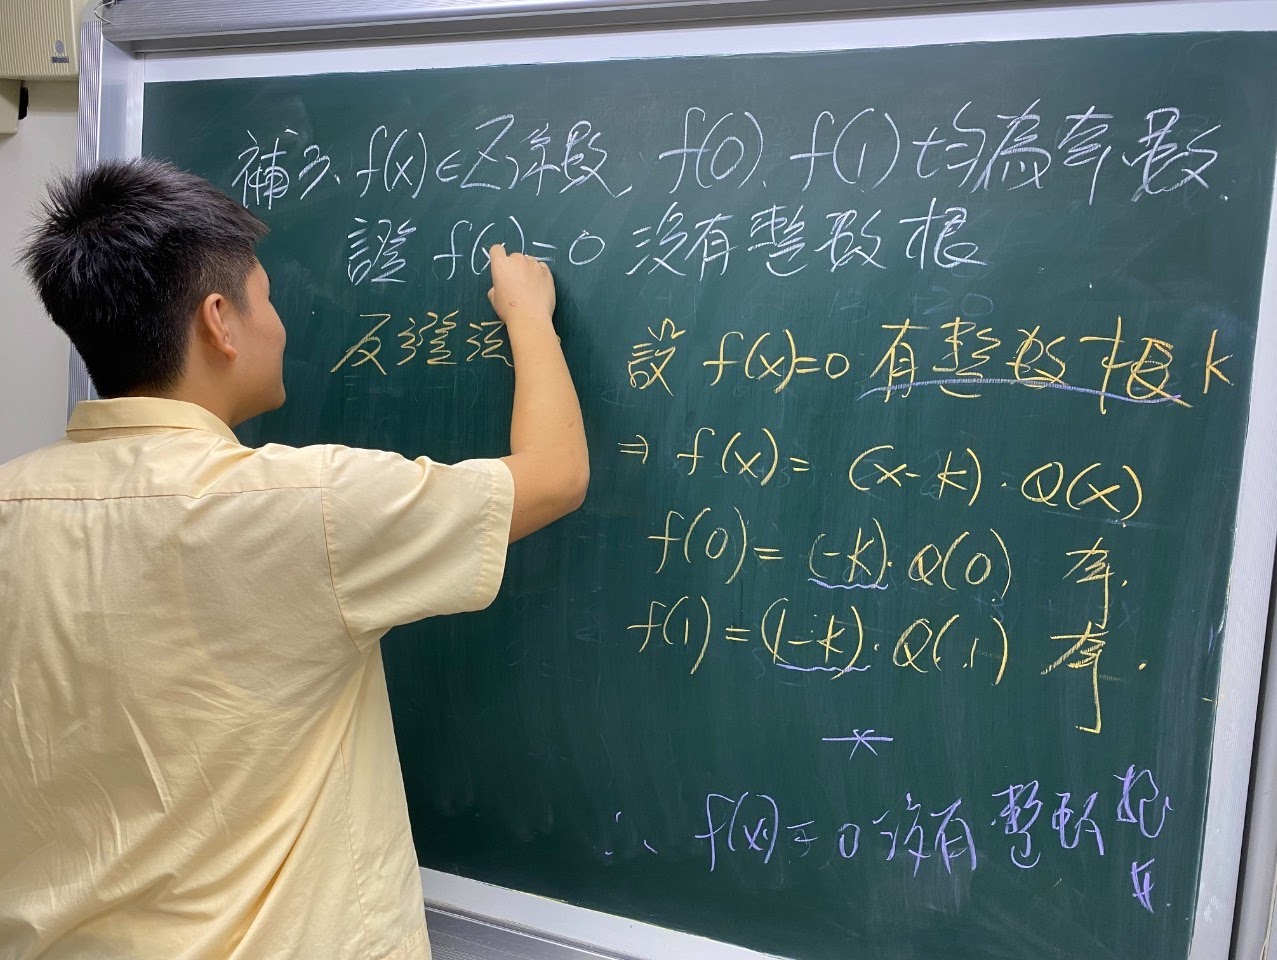 補3. f(x)∈Z係數, f(0)、f(1)均為奇數.
證 f(x)=0 沒有整數根
反證法
設 f(x)=0 有整數根 k
⇒ f(x)= (x-k)·Q(x)
f(0)= (-k)·Q(0) 奇.
f(1)=(1-k)·Q(1) 奇.
∴ f(x)=0 沒有整數根